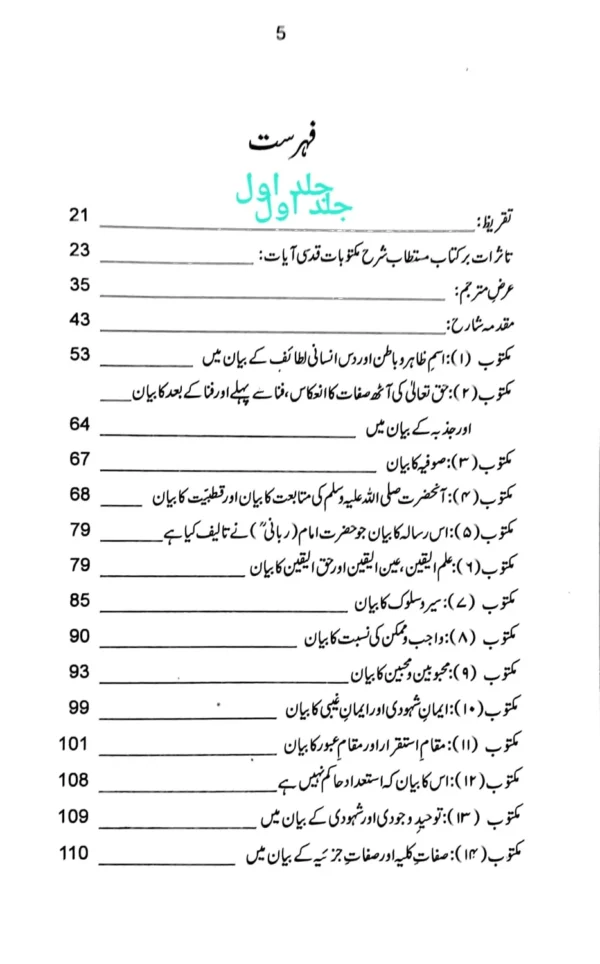 5
فہرست
جلد اول
جلد اول
تقریظ: 21
تاثرات بر کتاب مستطاب شرح مکتوبات قدسی آیات: 23
عرضِ مترجم: 35
مقدمہ شارح: 43
مکتوب (۱): اسمِ ظاہر و باطن اور دس انسانی لطائف کے بیان میں 53
مکتوب (۲): حق تعالیٰ کی آٹھ صفات کا انعکاس، فنا سے پہلے اور فنا کے بعد کا بیان
اور جذبہ کے بیان میں 64
مکتوب (۳): صوفیہ کا بیان 67
مکتوب (۴): آنحضرت صلی اللہ علیہ وسلم کی متابعت کا بیان اور قطبیّت کا بیان 68
مکتوب (۵): اس رسالہ کا بیان جو حضرت امام (ربانیؒ) نے تالیف کیا ہے 79
مکتوب (۶): علم الیقین، عین الیقین اور حق الیقین کا بیان 79
مکتوب (۷): سیر و سلوک کا بیان 85
مکتوب (۸): واجب و ممکن کی نسبت کا بیان 90
مکتوب (۹): محبوبین و محبین کا بیان 93
مکتوب (۱۰): ایمانِ شہودی اور ایمانِ غیبی کا بیان 99
مکتوب (۱۱): مقامِ استقرار اور مقامِ عبور کا بیان 101
مکتوب (۱۲): اس کا بیان کہ استعداد حاکم نہیں ہے 108
مکتوب (۱۳): توحیدِ وجودی اور شہودی کے بیان میں 109
مکتوب (۱۴): صفاتِ کلیہ اور صفاتِ جزئیہ کے بیان میں 110